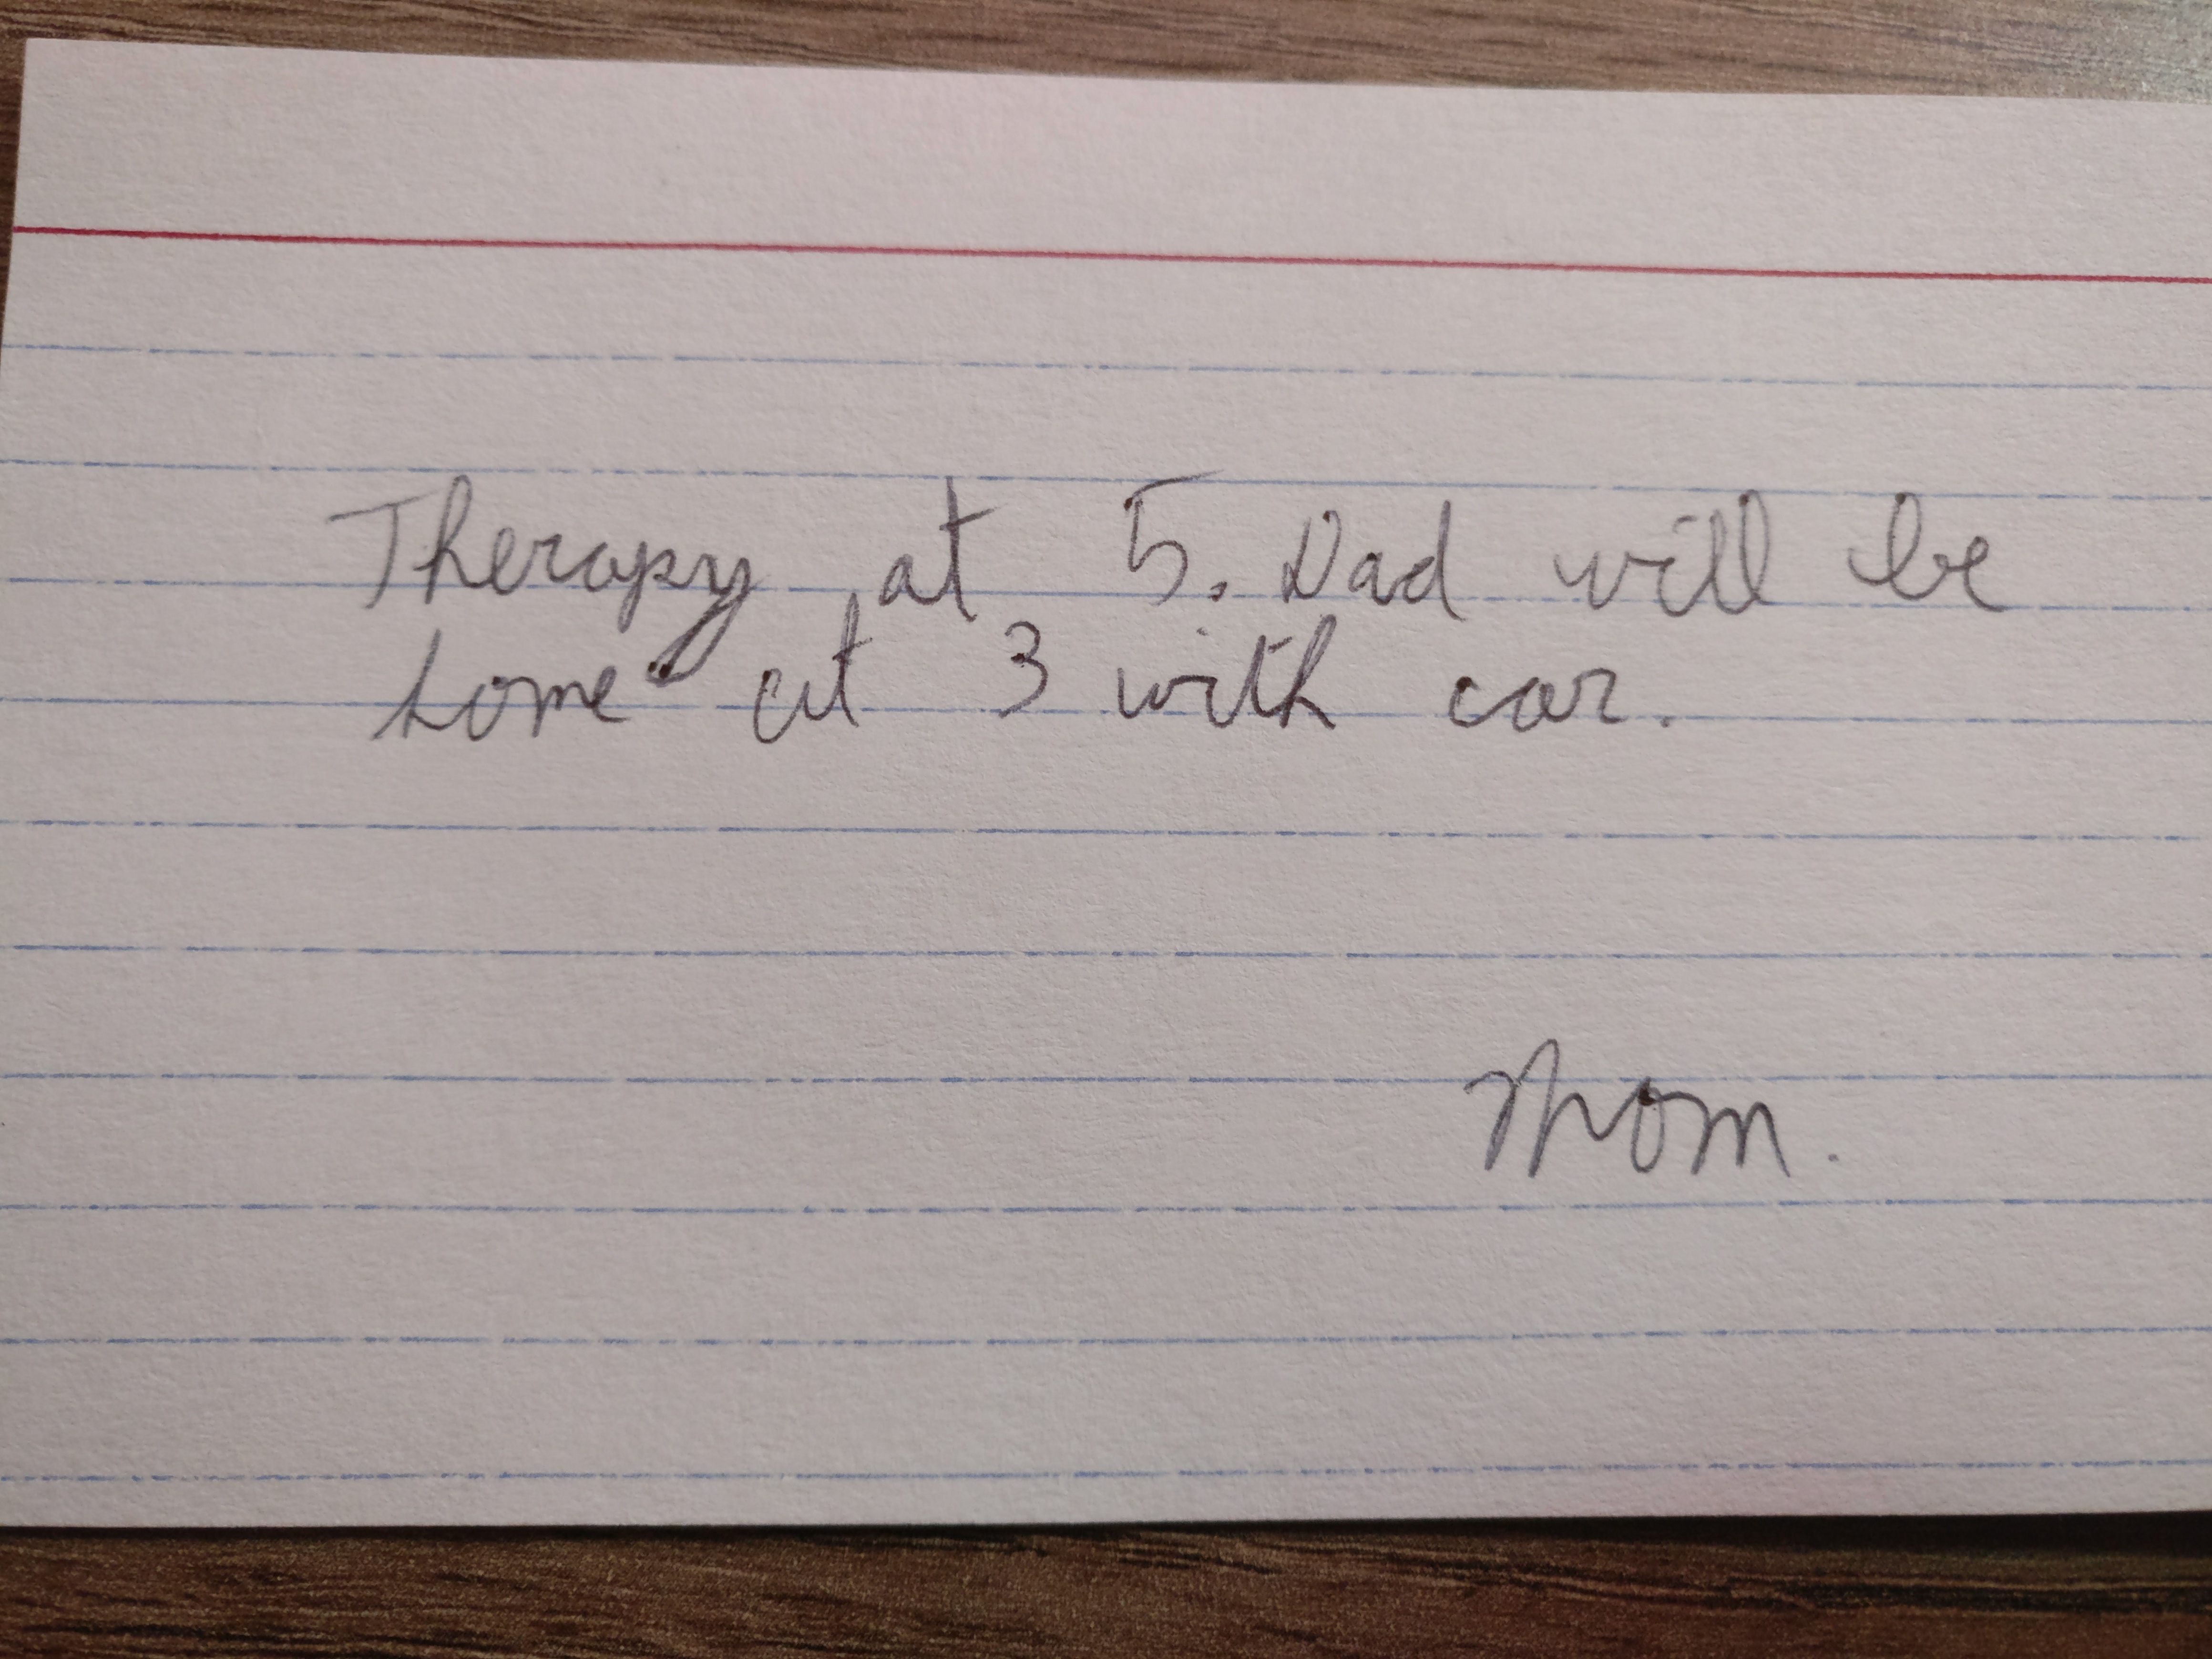 Therapy at 5. Dad will be
home at 3 with car.
Mom.